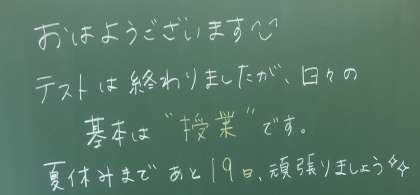 おはようございます
テストは終わりましたが、日々の
基本は"授業"です。
夏休みまであと19日、頑張りましょう✧✧